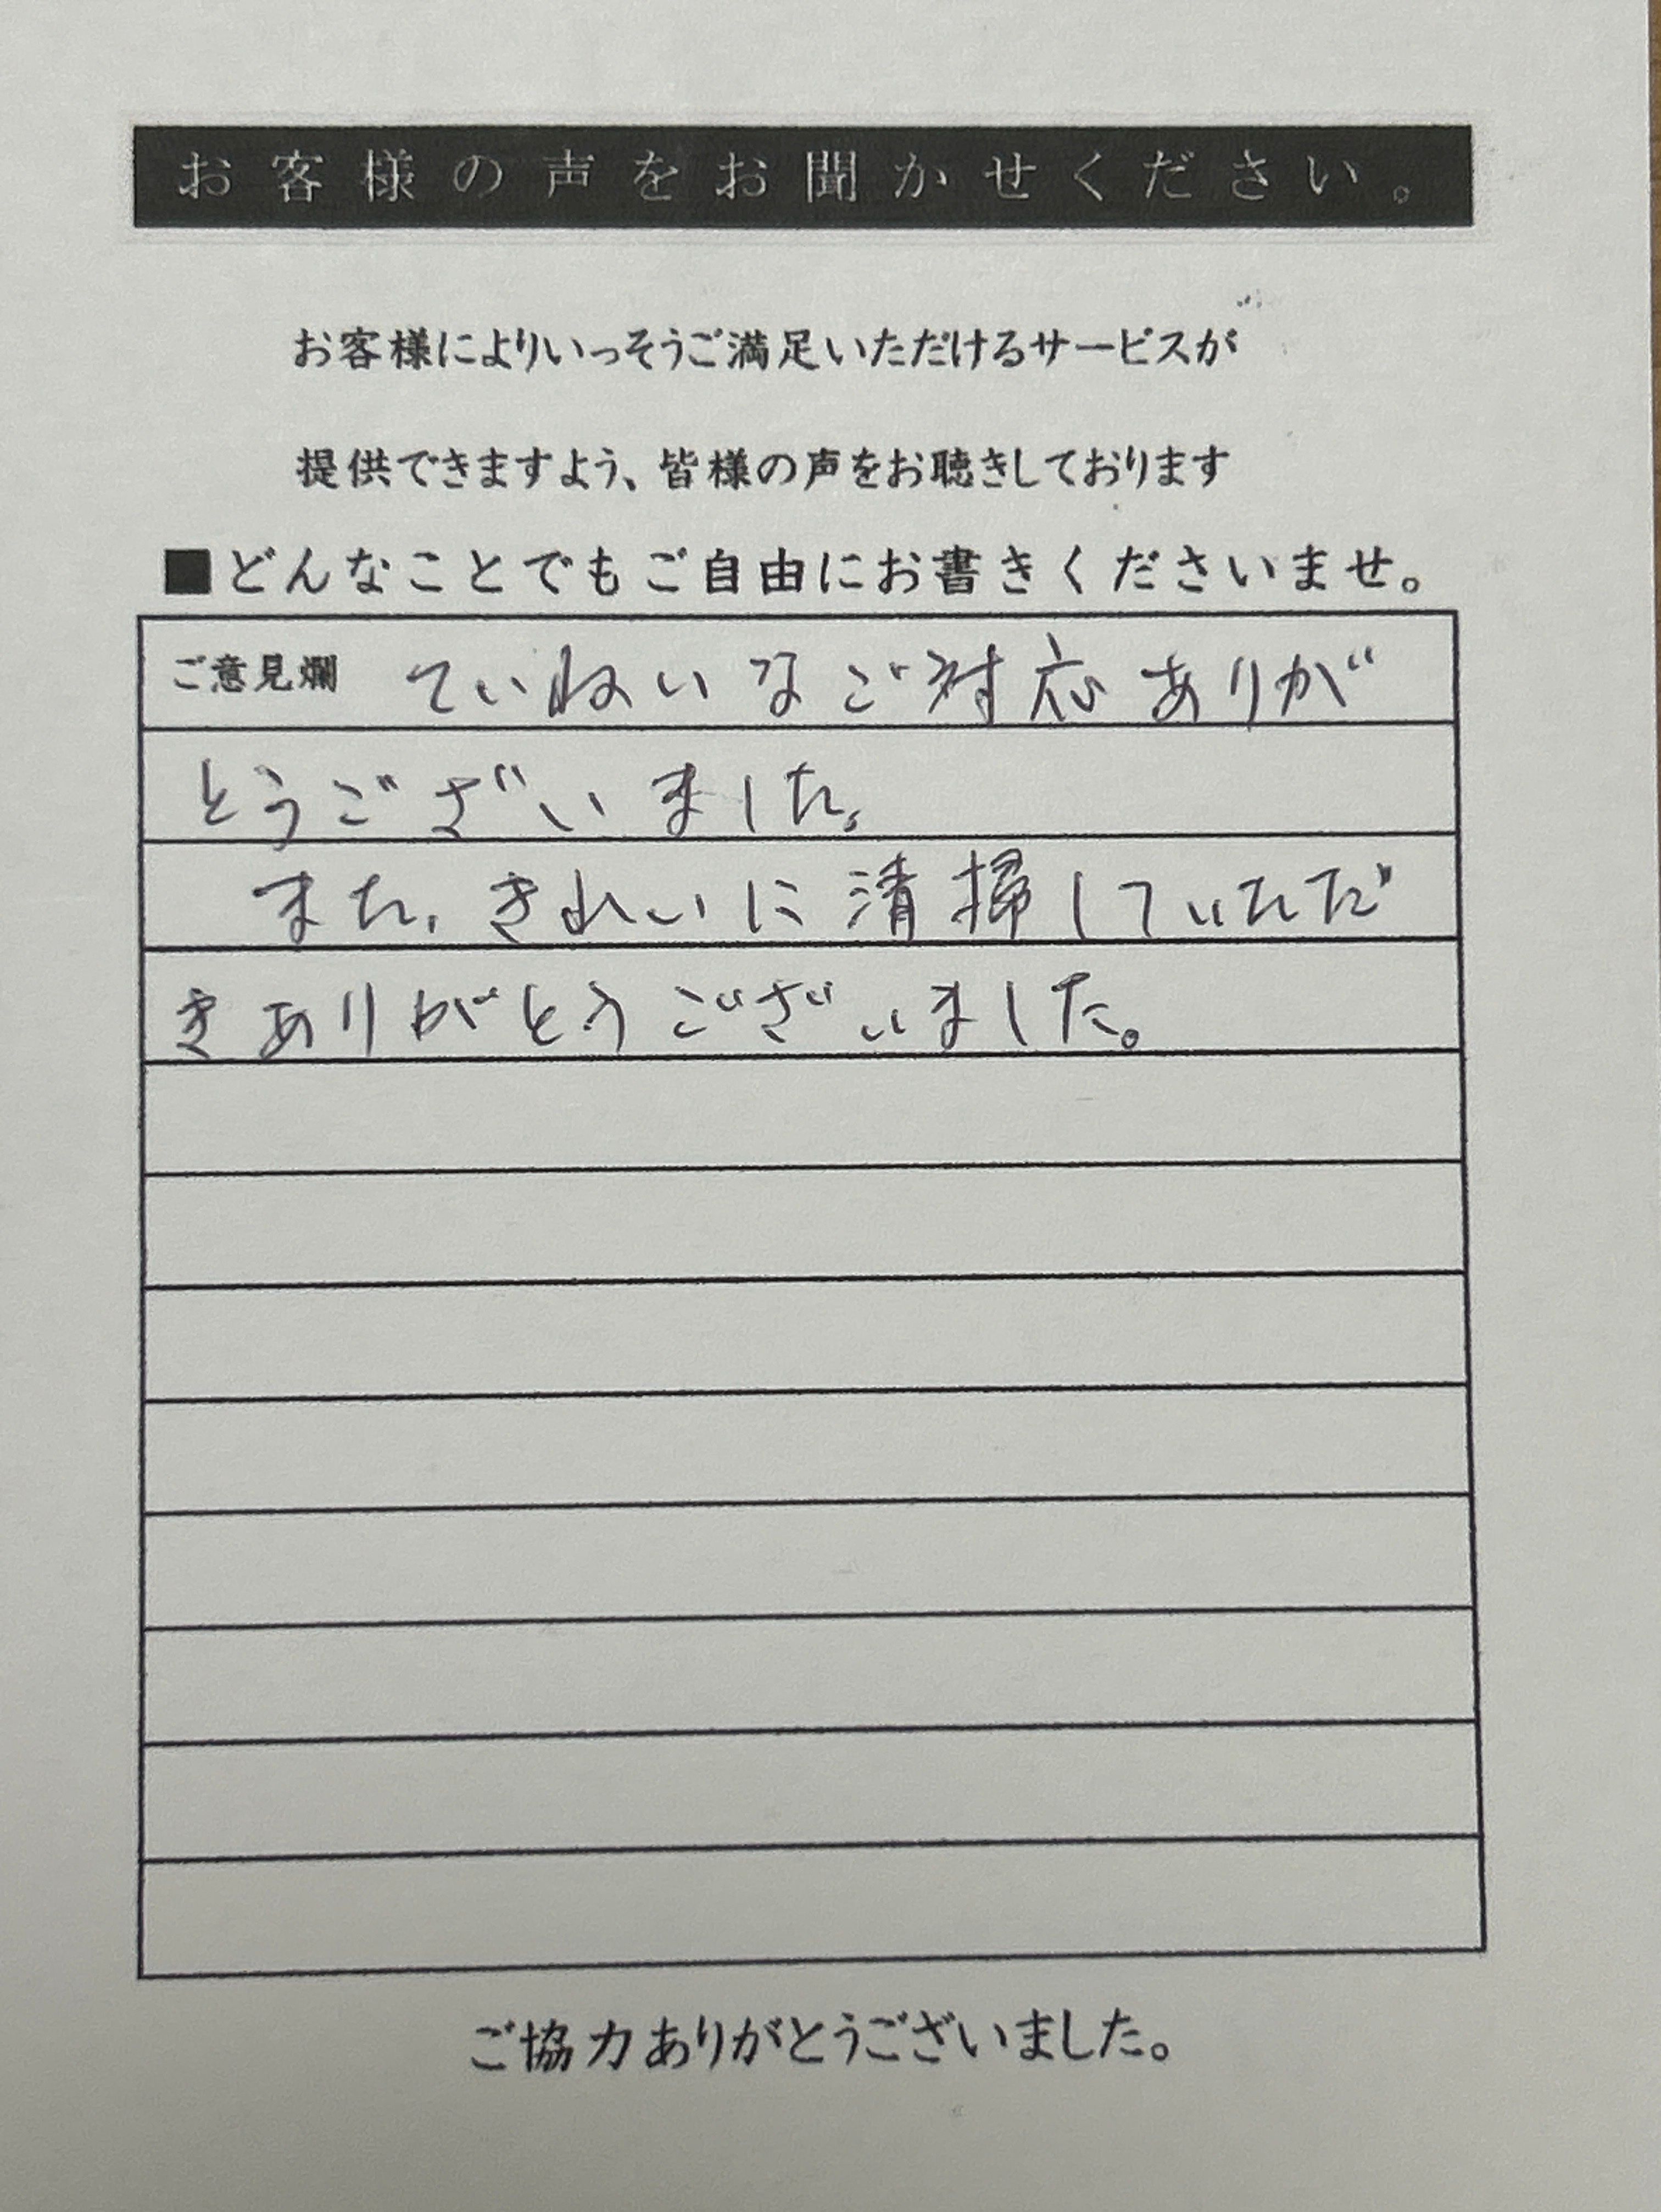 お客様の声をお聞かせください。
お客様によりいっそうご満足いただけるサービスが
提供できますよう、皆様の声をお聴きしております
■どんなことでもご自由にお書きくださいませ。
ご意見爛 ていねいなご対応ありが
とうございました。
また、きれいに清掃していただ
きありがとうございました。
ご協力ありがとうございました。